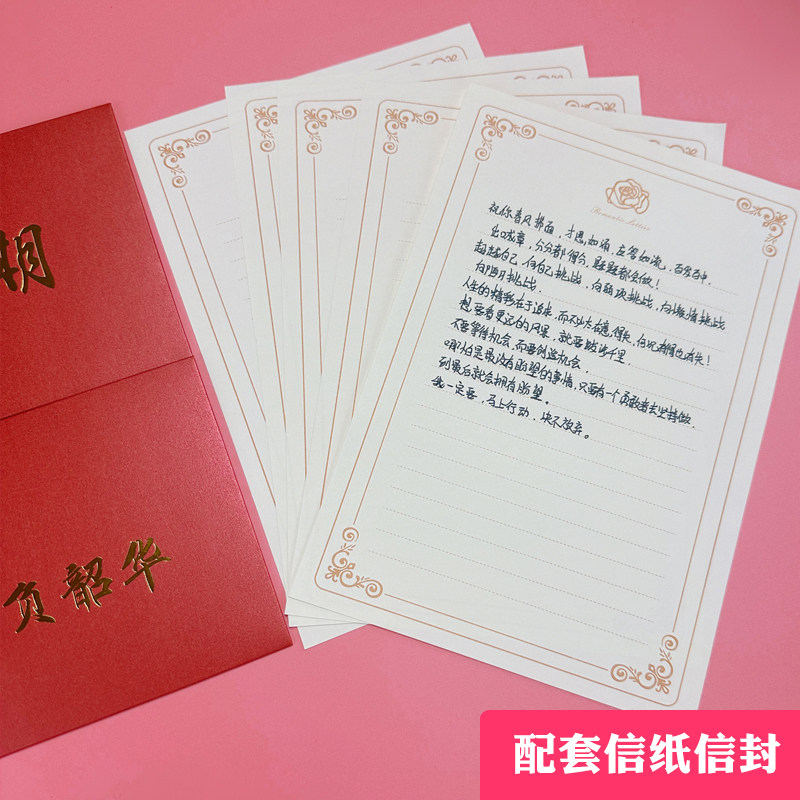 期
负韶华
Romantic Letters
祝你春风拂面，才思如涌，左答如流，百发百中，
出口成章，分分都得分，题题都会做！
超越自己，向自己挑战，向弱项挑战，向懒惰挑战，
向陋习挑战。
人生的精彩在于追求，而不必太在意得失，
想要看更远的风景，就要踏步千里。
不要等待机会，而要创造机会。
哪怕是最没有盼望的事情，只要有一个勇敢者去坚持做，
到最后就会拥有盼望。
我一定要，马上行动，决不放弃。
配套信纸信封